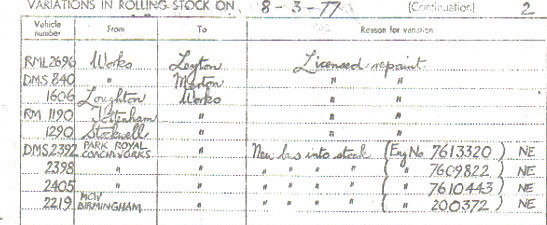 VARIATIONS IN ROLLING STOCK ON 8-3-77 (Continuation) 2
Vehicle number From To Reason for variation
RML2696 Works Leyton Licensed repaint
DMS 840 " Merton " "
1606 Loughton Works " "
RM 1190 Tottenham " " "
1290 Stockwell " " "
DMS2392 PARK ROYAL COACHWORKS " New bus into stock (Eng No. 7613320) NE
2398 " " " " " " ( " 7609822) NE
2405 " " " " " " ( " 7610443) NE
2219 MCW BIRMINGHAM " " " " " ( " 200372) NE